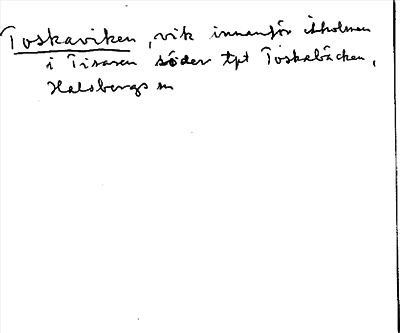 Toskaviken, vik innanför ikholmen
i Tisaren söder tpt Toskabäcken,
Halsbergs sn